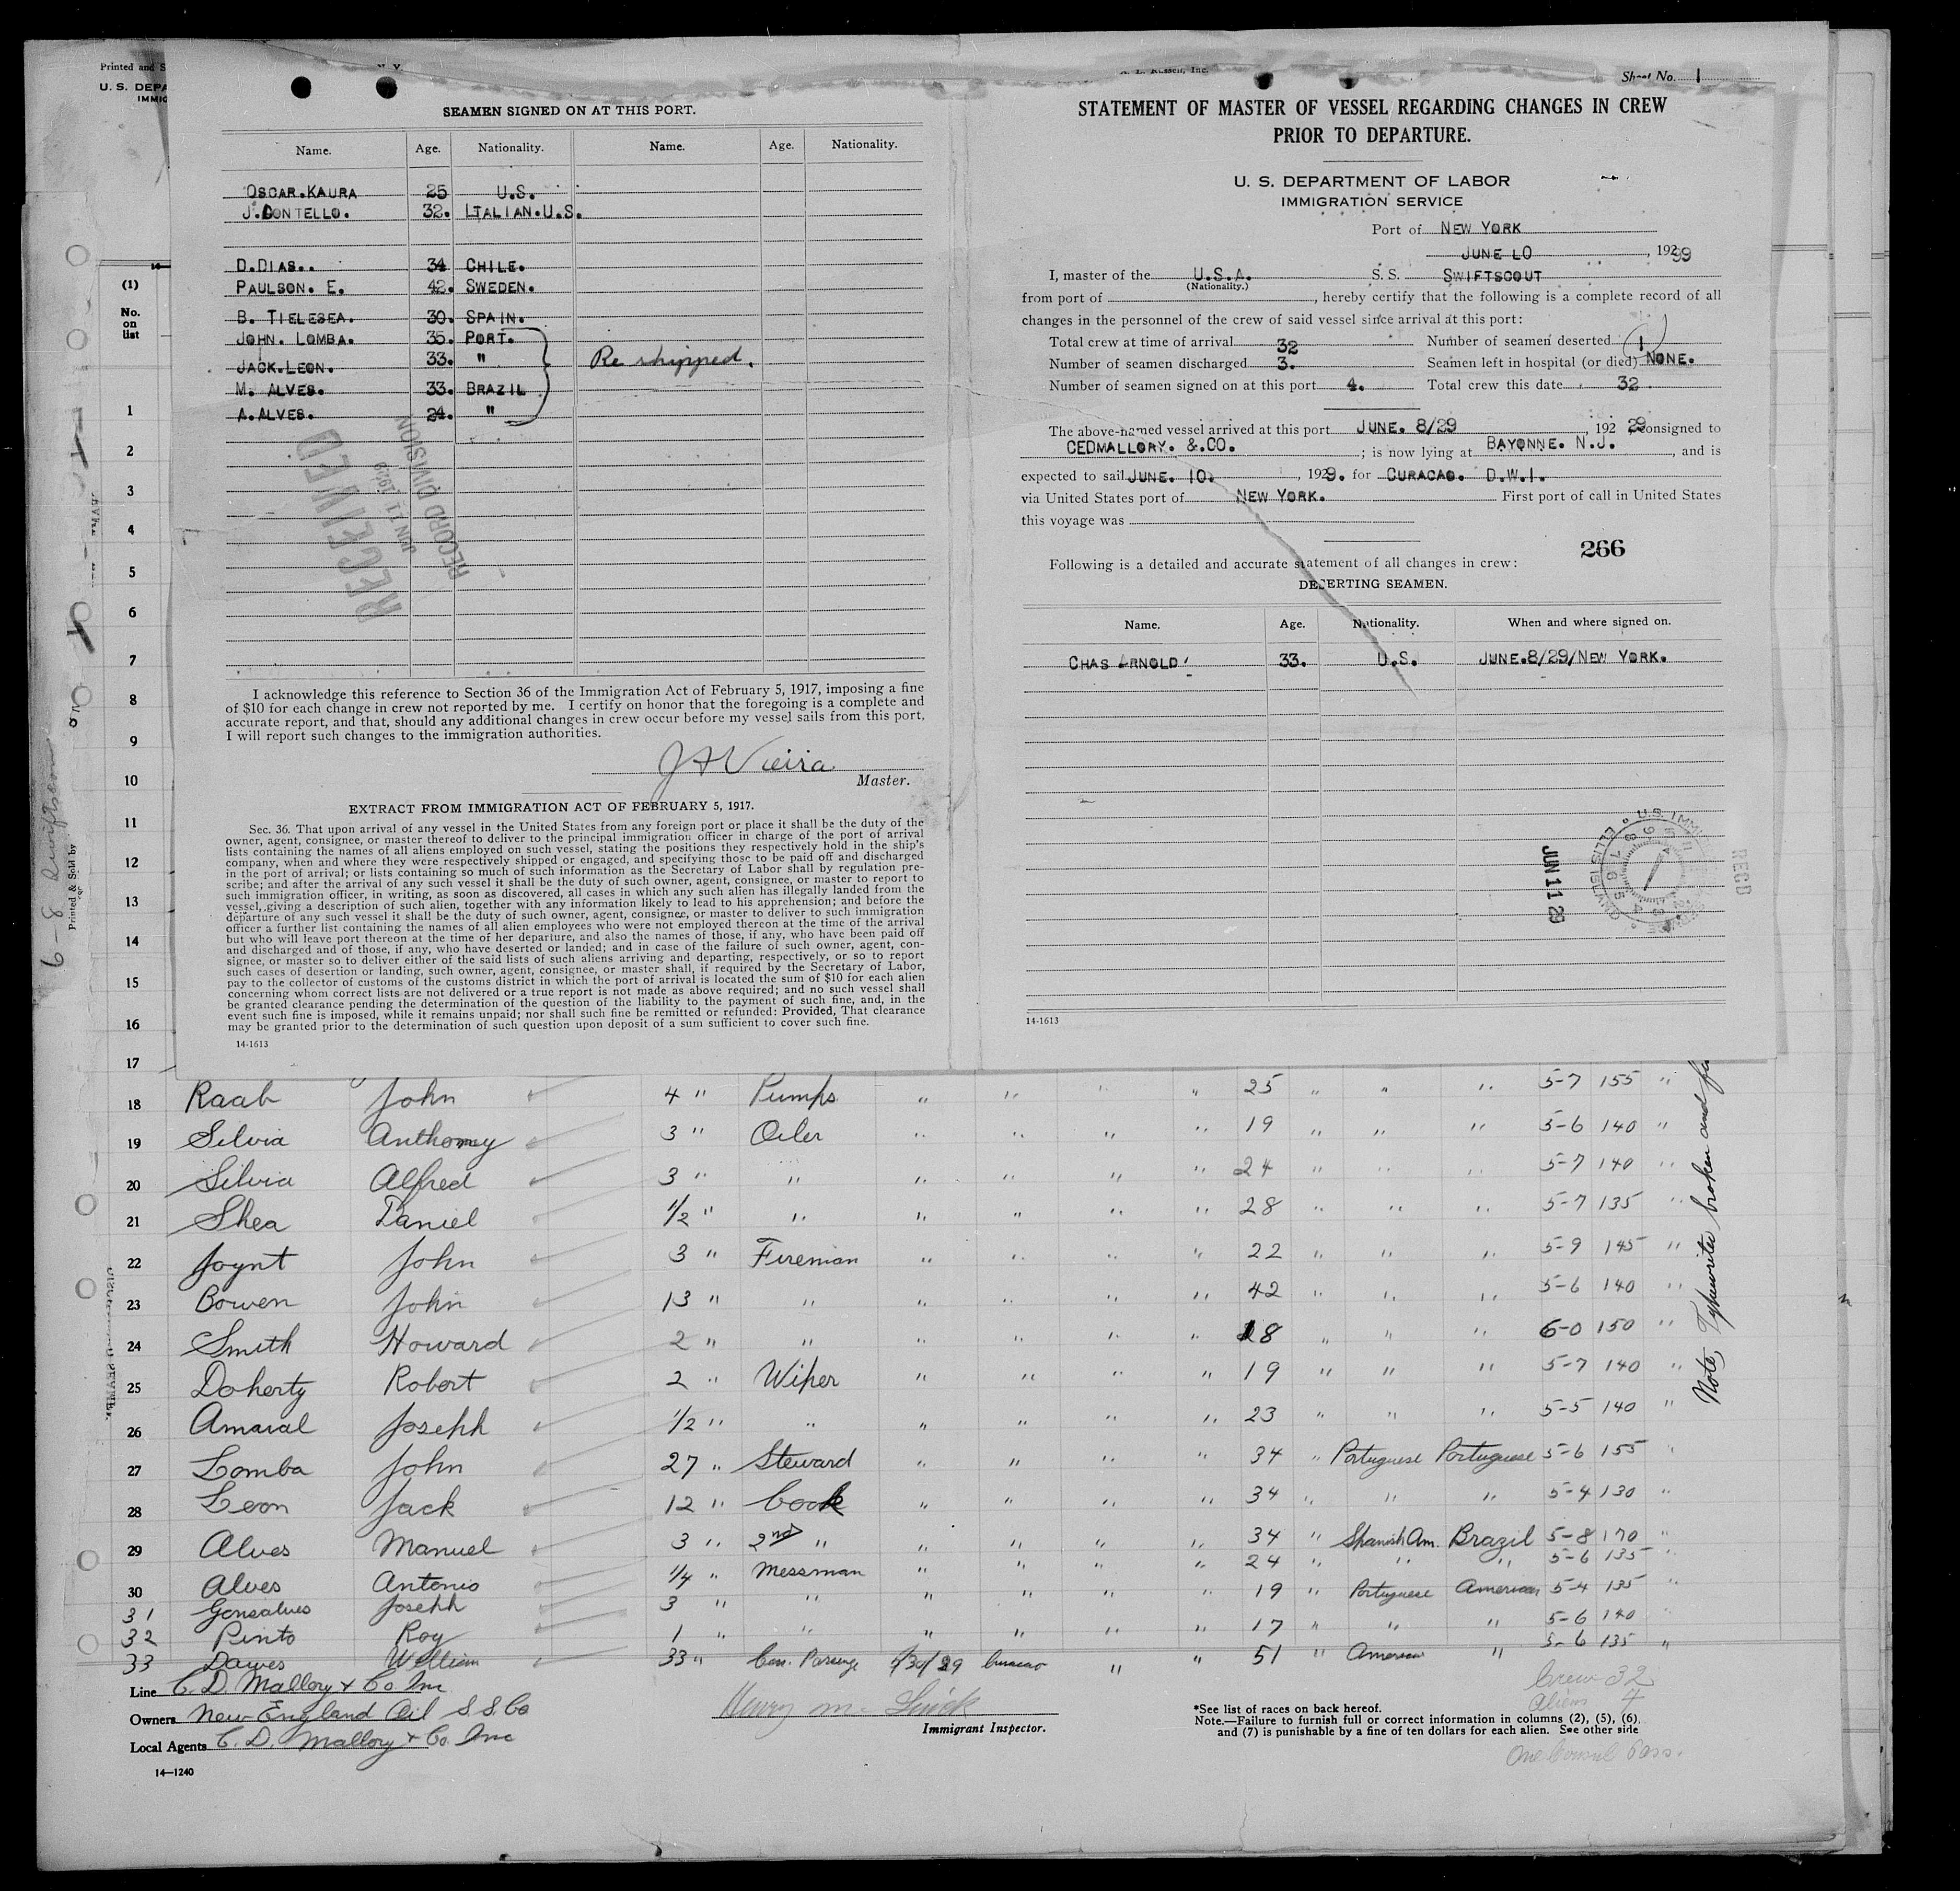 Printed and S
U. S. DEPA
IMMIG
SEAMEN SIGNED ON AT THIS PORT.
Name. Age. Nationality. Name. Age. Nationality.
OSCAR.KAURA 25 U.S.
J.DONTELLO. 32. LTALIAN.U.S.
D.DIAS.. 34 CHILE.
PAULSON. E. 42. SWEDEN.
B. TIELESEA. 30. SPAIN.
JOHN. LOMBA. 35. PORT.
JACK.LEON. 33. " Re shipped.
M. ALVES. 33. BRAZIL
A.ALVES. 24. "
RECEIVED
JUN 11 1929
RECORD DIVISION
I acknowledge this reference to Section 36 of the Immigration Act of February 5, 1917, imposing a fine
of $10 for each change in crew not reported by me. I certify on honor that the foregoing is a complete and
accurate report, and that, should any additional changes in crew occur before my vessel sails from this port,
I will report such changes to the immigration authorities.
J A Vieira
Master.
EXTRACT FROM IMMIGRATION ACT OF FEBRUARY 5, 1917.
Sec. 36. That upon arrival of any vessel in the United States from any foreign port or place it shall be the duty of the
owner, agent, consignee, or master thereof to deliver to the principal immigration officer in charge of the port of arrival
lists containing the names of all aliens employed on such vessel, stating the positions they respectively hold in the ship's
company, when and where they were respectively shipped or engaged, and specifying those to be paid off and discharged
in the port of arrival; or lists containing so much of such information as the Secretary of Labor shall by regulation pre-
scribe; and after the arrival of any such vessel it shall be the duty of such owner, agent, consignee, or master to report to
such immigration officer, in writing, as soon as discovered, all cases in which any such alien has illegally landed from the
vessel, giving a description of such alien, together with any information likely to lead to his apprehension; and before the
departure of any such vessel it shall be the duty of such owner, agent, consignee, or master to deliver to such immigration
officer a further list containing the names of all alien employees who were not employed thereon at the time of the arrival
but who will leave port thereon at the time of her departure, and also the names of those, if any, who have been paid off
and discharged and of those, if any, who have deserted or landed; and in case of the failure of such owner, agent, con-
signee, or master so to deliver either of the said lists of such aliens arriving and departing, respectively, or so to report
such cases of desertion or landing, such owner, agent, consignee, or master shall, if required by the Secretary of Labor,
pay to the collector of customs of the customs district in which the port of arrival is located the sum of $10 for each alien
concerning whom correct lists are not delivered or a true report is not made as above required; and no such vessel shall
be granted clearance pending the determination of the question of the liability to the payment of such fine, and, in the
event such fine is imposed, while it remains unpaid; nor shall such fine be remitted or refunded: Provided, That clearance
may be granted prior to the determination of such question upon deposit of a sum sufficient to cover such fine.
14-1613
Sheet No. 1
STATEMENT OF MASTER OF VESSEL REGARDING CHANGES IN CREW
PRIOR TO DEPARTURE.
U. S. DEPARTMENT OF LABOR
IMMIGRATION SERVICE
Port of NEW YORK
JUNE LO, 192
I, master of the U.S.A. S. S. SWIFTSCOUT
(Nationality.)
from port of , hereby certify that the following is a complete record of all
changes in the personnel of the crew of said vessel since arrival at this port:
Total crew at time of arrival 32 Number of seamen deserted 1
Number of seamen discharged 3. Seamen left in hospital (or died) NONE.
Number of seamen signed on at this port 4. Total crew this date 32
The above-named vessel arrived at this port JUNE. 8/29, 192 29 consigned to
CEDMALLORY. &.CO. ; is now lying at BAYONNE. N.J. , and is
expected to sail JUNE. 10. , 1929. for CURACAO. D.W.I.
via United States port of NEW YORK. First port of call in United States
this voyage was
266
Following is a detailed and accurate statement of all changes in crew:
DESERTING SEAMEN.
Name. Age. Nationality. When and where signed on.
CHAS ARNOLD 33. U.S. JUNE.8/29/NEW YORK.
JUN 11 29
RECD
14-1613
(1)
No.
on
list
1
2
3
4
5
6
7
8
9
10
11
12
13
14
15
16
17
18 Raab John 4 " Pumps " " " " 25 " " " 5-7 155 "
19 Silvia Anthony 3 " Oiler " " " " 19 " " " 5-6 140 "
20 Silvia Alfred 3 " " " " " " 24 " " " 5-7 140 "
21 Shea Daniel 1/2 " " " " " " 28 " " " 5-7 135 "
22 Joynt John 3 " Fireman " " " " 22 " " " 5-9 145 "
23 Bowen John 13 " " " " " " 42 " " " 5-6 140 "
24 Smith Howard 2 " " " " " " 18 " " " 6-0 150 "
25 Doherty Robert 2 " Wiper " " " " 19 " " " 5-7 140 "
26 Amaral Joseph 1/2 " " " " " " 23 " " " 5-5 140 "
27 Lomba John 27 " Steward " " " " 34 " Portuguese Portuguese 5-6 155 "
28 Leon Jack 12 " Cook " " " " 34 " " " 5-4 130 "
29 Alves Manuel 3 " 2nd " " " " " 34 " Spanish Am. Brazil 5-8 170 "
30 Alves Antonio 1/4 " Messman " " " " 24 " " " 5-6 135 "
31 Gonsalves Joseph 3 " " " " " " 19 " Portuguese American 5-4 135 "
32 Pinto Roy 1 " " " " " " 17 " " " 5-6 140 "
33 Dawes William 33 " Con. 5/30/29 Curacao " " 51 " American " 5-6 135 "
Note, Typewriter broken and
Line C. D. Mallory & Co Inc
Owners New England Oil S S Co
Local Agents C. D. Mallory & Co. Inc
14—1240
Henry M.
Immigrant Inspector.
*See list of races on back hereof.
Note.—Failure to furnish full or correct information in columns (2), (5), (6),
and (7) is punishable by a fine of ten dollars for each alien. See other side
Crew 32
Aliens 4
One Consul Pass.
Printed & Sold by